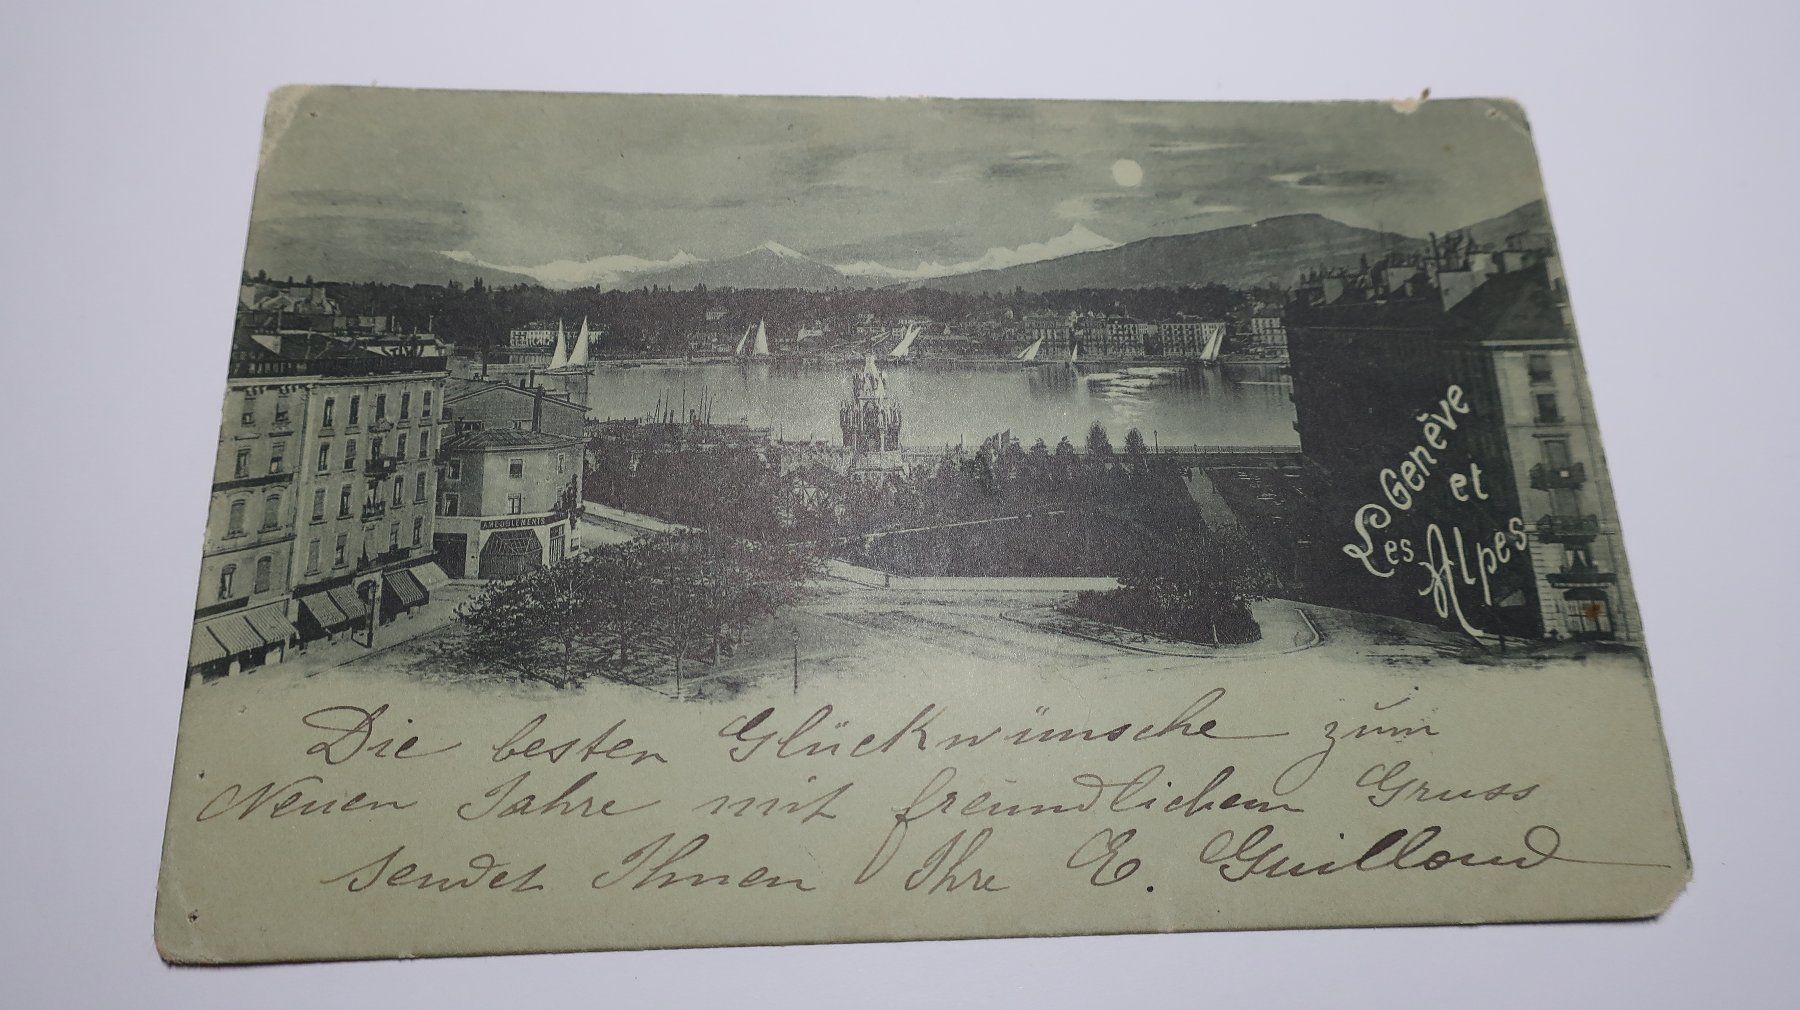 AMEUBLEMENTS
Genève
et
Les Alpes
Die besten Glückwünsche zum
Neuen Jahre mit freundlichem Gruss
sendet Ihnen Ihre E. Guilloud